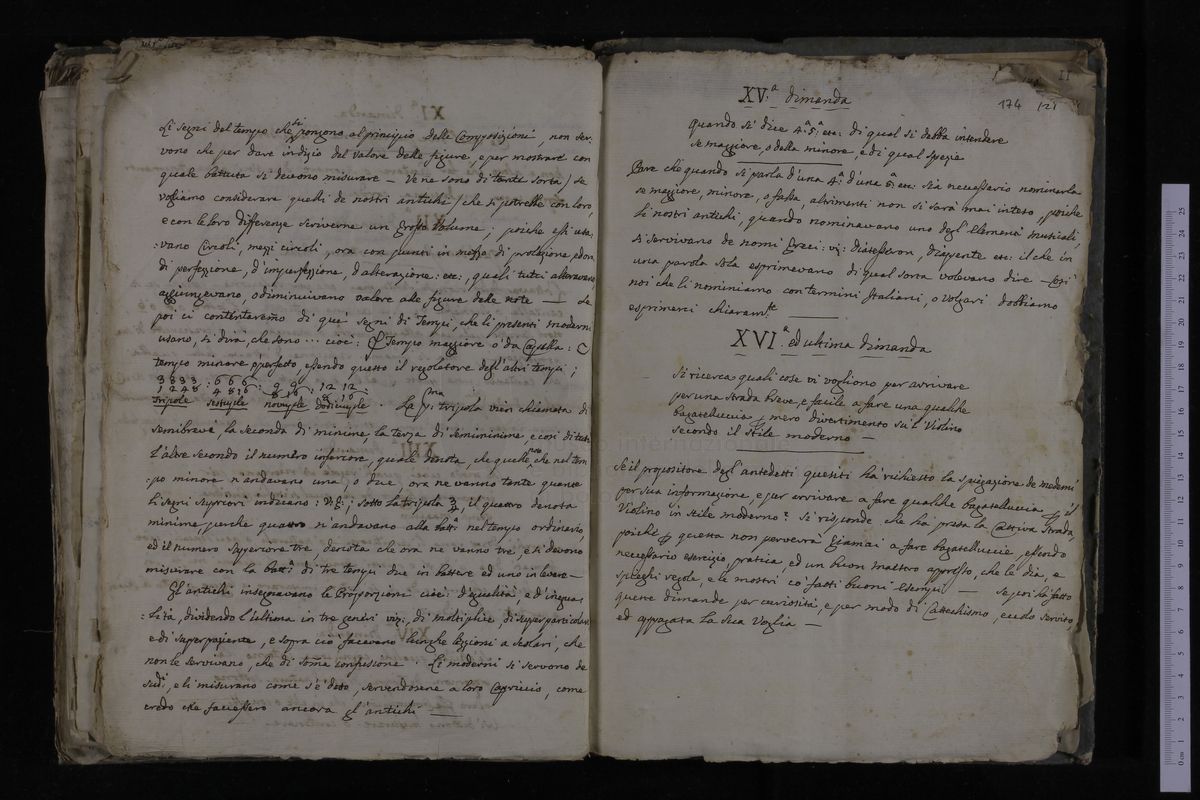 Li segni del tempo che si pongono al principio delle Composizioni, non ser-
vono che per dare indizio del valore delle figure, e per mostrare con
quale battuta si devono misurare — Ve ne sono di tante sorta / se
vogliamo considerare quelli de nostri antichi / che si potrebbe con loro,
e con le loro differenze scriverne un grosso Volume; poiche essi usa-
:vano Circoli, mezzi circoli, ora con punti in mezzo di prolazione, ed ora
di perfezzione, d'imperfezzione, d'alterazione: etc:, quali tutti alteravano
aggiungevano, o diminuivano valore alle figure delle note — Se
poi ci contentaremo di que' segni di Tempi, che li presenti moderni
usano, si dirà, che sono ... cioè: Tempo maggiore o da Capella: C
tempo minore o perfetto, essendo questo il regolatore degl'altri tempi;
3 3 3 3 : 6 6 6 : 9 9 : 12 12
1 2 4 8 4 8 16 8 16 8 16
Triple sestuple nonuple dodicuple. La pma tripola vien chiamata di
semibreve, la seconda di minime la terza di semiminime, e cosi di tutte
l'altre secondo il numero inferiore, quale denota, che quelle note che nel tem
:po minore n'andavano una, o due, ora ne vanno tante quante
li segni superiori indicano: sotto la tripola 3/2, il denota
minime, perche n'andavano alla batta nel tempo ordinario,
ed il numero superiore tre, denota che ora ne vanno tre, e si devono
misurare con la batta di tre tempi due in battere ed uno in levare —
Gl'antichi insegnavano le Proporzioni cioè: d'egualità e d'inegua
:lità, dividendo l'ultima in tre generi di moltiplice, di superparticolare
e di superpaziente, e sopra ciò facevano lunghe lezzioni a scolari, che
non le servivano, che di somma confusione. Li moderni si servono de
sudi, e li misurano come s'è detto, servendosene a loro Capriccio, come
credo che facessero ancora gl'antichi —
174 121
XV.a dimanda
Quando si dice 4a 5a etc: di qual si debba intendere
se maggiore, o della minore, e di qual spezie
Pare che quando si parla d'una 4a d'una 5a etc: sia necessario nominarla
se maggiore, minore, o falsa, altrimenti non si sarà mai inteso, poiche
li nostri antichi, quando nominavano uno degl'Elementi musicali,
si servivano de nomi Greci: Diatessaron, Diapente etc: il che in
una parola sola esprimevano di qual sorta volevano dire — Cosi
noi che li nominiamo con termini Italiani, o Volgari dobbiamo
esprimerci chiaramte
XVI a ed ultima dimanda
Si ricerca quali cose vi vogliono per arrivare
per una strada breve, e facile a fare una qualche
bagatelluccia mero divertimento su'l Violino
secondo il stile moderno —
Se il propositore degl'antedetti quesiti hà richiesto la spiegazione de medemi
per sua informazione, e per arrivare a fare qualche bagatelluccia il
Violino in stile moderno? Si risponde che ha preso la Cattiva strada,
poiche questa non perverrà Giamai a fare bagatelluccie, essendo
necessario esercizio, pratica, ed un buon maestro appresso, che le dia, e
spieghi regole, e le mostri co' fatti buoni Esempi — Se poi hà fatto
queste dimande per curiosità, e per modo di Catechismo, eccolo servito,
ed appagata la sua Voglia —